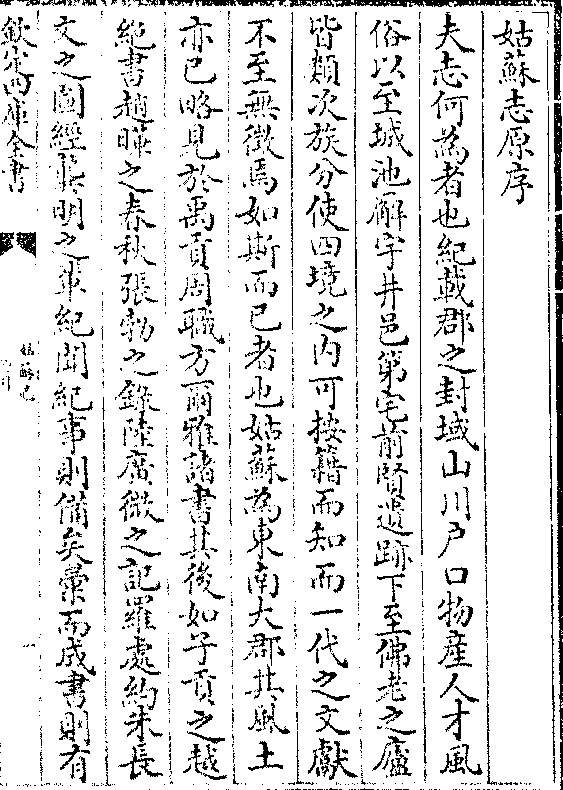 姑蘇志原序
夫志何為者也紀載郡之封域山川戶口物產人才風
俗以至城池廨宇井邑第宅前賢遺跡下至佛老之廬
皆類次族分使四境之内可按籍而知而一代之文獻
不至無徵焉如斯而已者也姑蘇為東南大郡其風土
亦已略見於禹貢周職方爾雅諸書其後如子貢之越
絶書趙曄之春秋張勃之錄陸廣微之記羅處約朱長
文之圖經龔明之輩紀聞紀事則備矣彚而成書則有
欽定四庫全書
姑蘇志
一